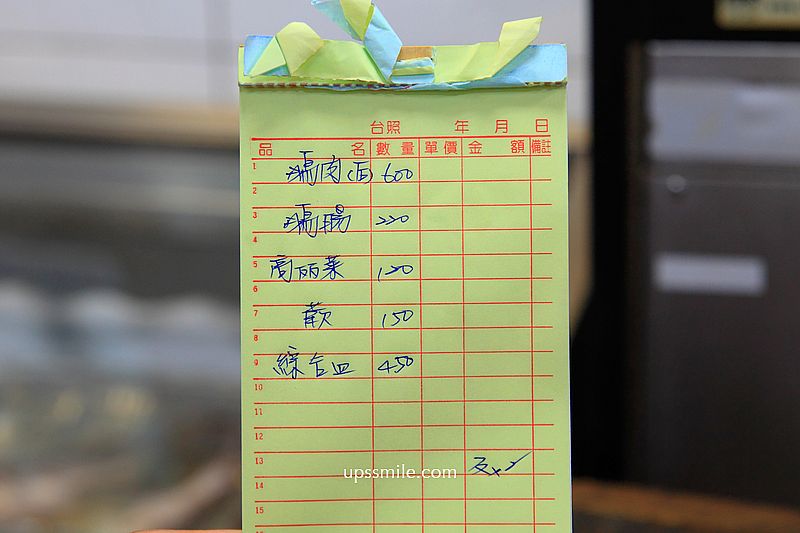 台照 年 月 日
品 名 數量 單價 金 額 備註
1 肉 600
2
3 腸 220
4
5 高丽菜 120
6
7 150
8
9 綜合皿 450
10
11
12
13
14
15
upssmile.com